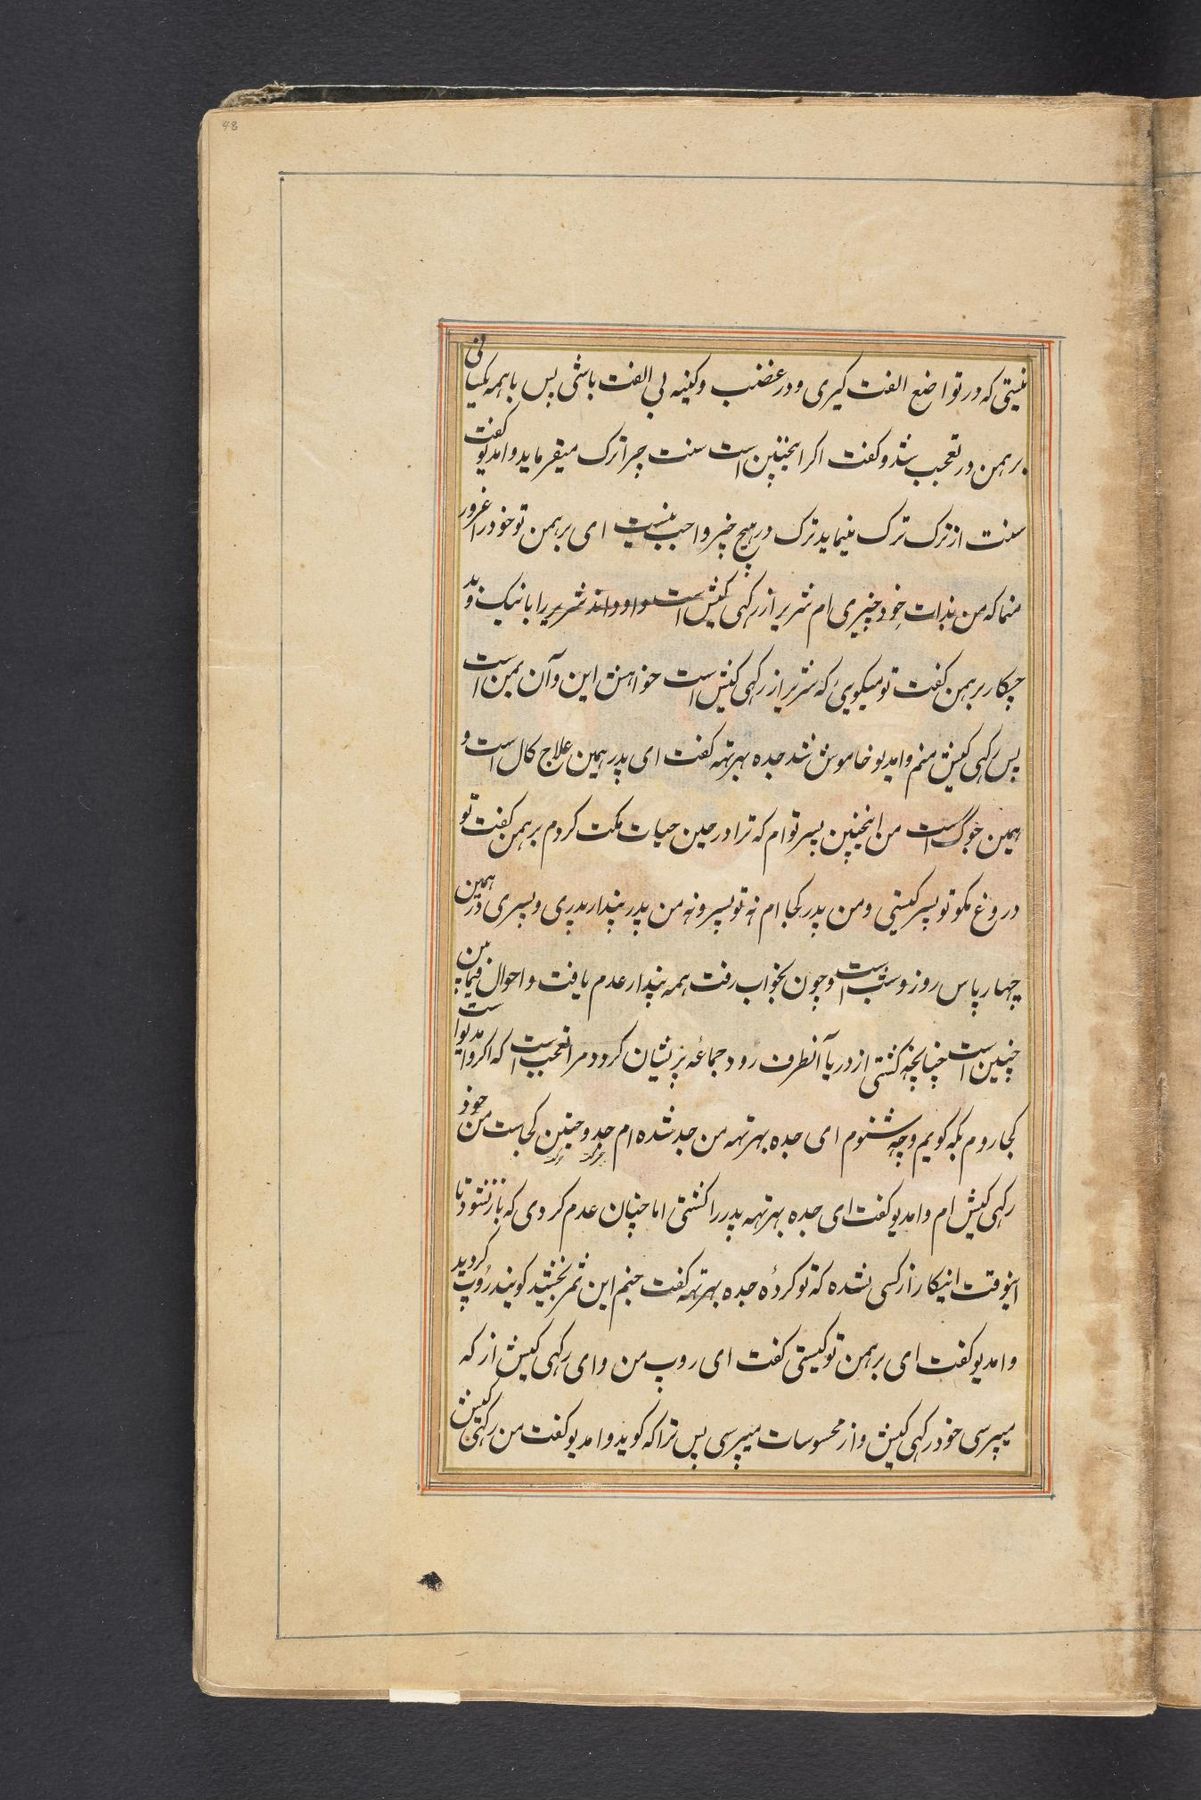 48
نیستی که در تواضع الفت کیری و در غضب و کینه بی الفت باشی پس با همه یکسانی
برهمن در تعجب شد و کفت اکر اینچنین است سنت چرا ترک میفرماید وامدیو کفت
سنت از ترک ترک مینماید ترک در هیچ چیز واجب نیست ای برهمن تو خود را غرور
منما که من بذات خود چیزی ام شریر از رکهی کیش است و او داند شریر را با نیک و بد
چکار برهمن کفت تو میکویی که شریر از رکهی کیش است خواهش این و آن بمن است
پس رکهی کیش منم وامدیو خاموش شد جده بهرتهه کفت ای پدر همین علاج کال است و
همین جوک است من اینچنین پسر توام که ترا در حین حیات مکت کردم برهمن کفت تو
دروغ مکو تو پسر کیستی و من پدر کجا ام نه تو پسر و نه من پدر پندار پدری و پسری در همین
چهار پاس روز و شب است و چون بخواب رفت همه پندار عدم یافت و احوال فیمابین
چنین است چنانچه کشتی از دریا آنطرف رود جماعه پریشان کردد مرا تعجب است که اکر وامدیو است
کجا روم بکه کویم و چه شنوم ای جده بهرتهه من جد شده ام جد و چنین کجاست من خود
رکهی کیش ام وامدیو کفت ای جده بهرتهه پدر را کشتی اما چنان عدم کردی که باز نشود تا
اینوقت اینکار از کسی نشده که تو کردهٔ جده بهرتهه کفت جنم این ثمر بخشید کویند روپ کردید
وامدیو کفت ای برهمن تو کیستی کفت ای روپ من وای رکهی کیش از که
میپرسی خود رکهی کیش و از محسوسات میپرسی پس ترا که کوید وامدیو کفت من رکهی کیش